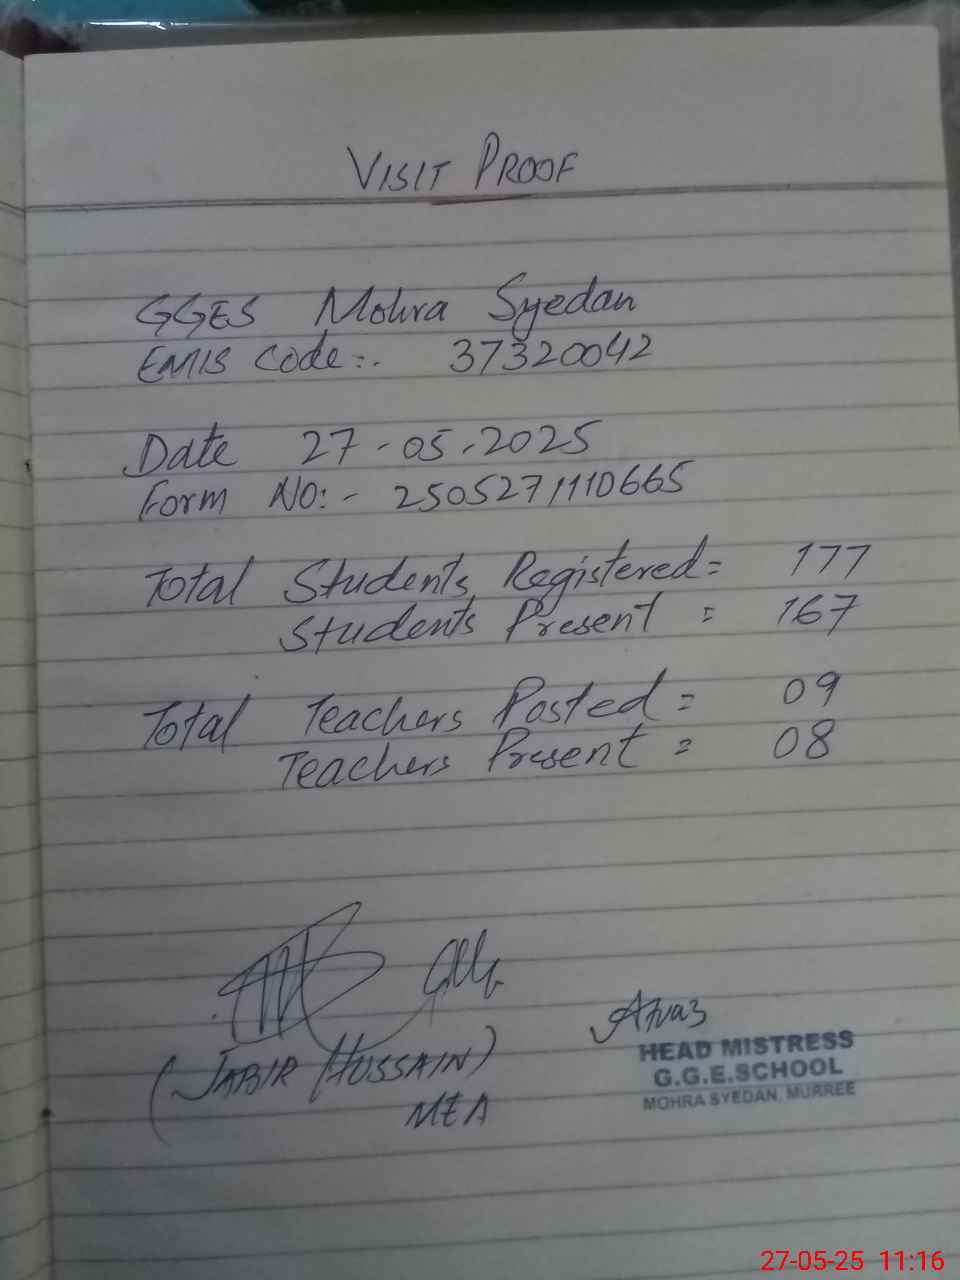 VISIT PROOF
GGES Mohra Syedan
EMIS Code:-. 37320042
Date 27-05-2025
Form NO:- 2505271110665
Total Students Registered= 177
Students Present = 167
Total Teachers Posted = 09
Teachers Present = 08
(JABIR HUSSAIN)
MEA
HEAD MISTRESS
G.G.E.SCHOOL
MOHRA SYEDAN, MURREE
27-05-25 11:16